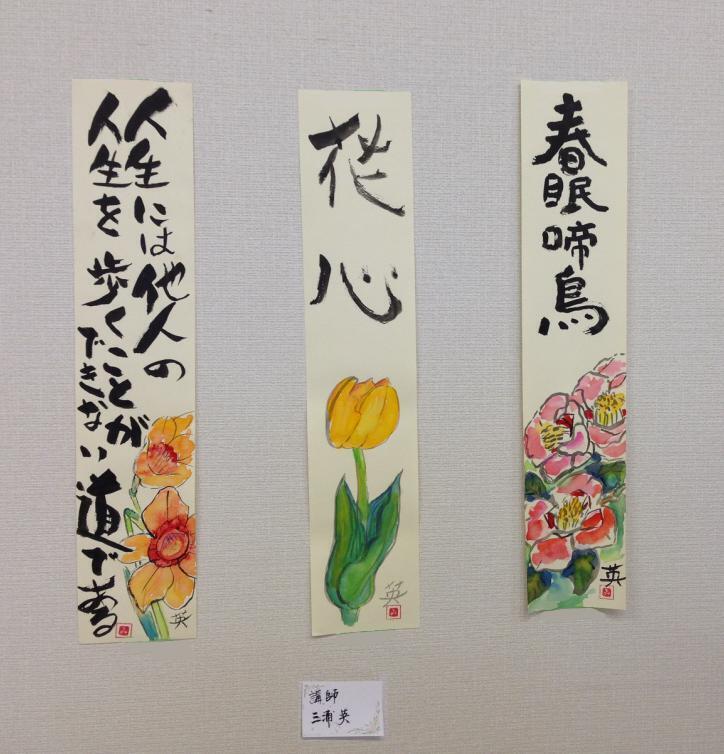 春眠啼鳥
英
花心
英
人生には他人の
人生を歩くことが
できない道である
英
講師
三浦英